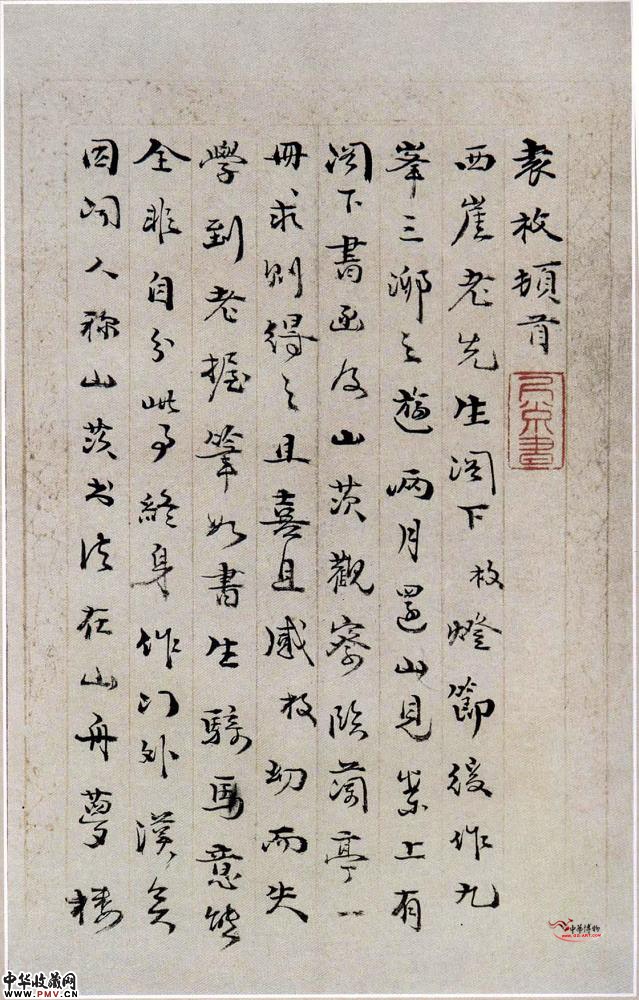 袁枚頓首
西崖老先生閣下枚燈節後作九
峯三泖之遊兩月還山見案上有
閣下書函及山茨觀察臨蘭亭一
冊求則得之且喜且感枚幼而失
學到老握筆如書生騎馬意態
全非自分此事終身作门外漢矣
因聞人称山茨书法在山舟夢楼
中华收藏网
WWW.PMV.CN
中华博物